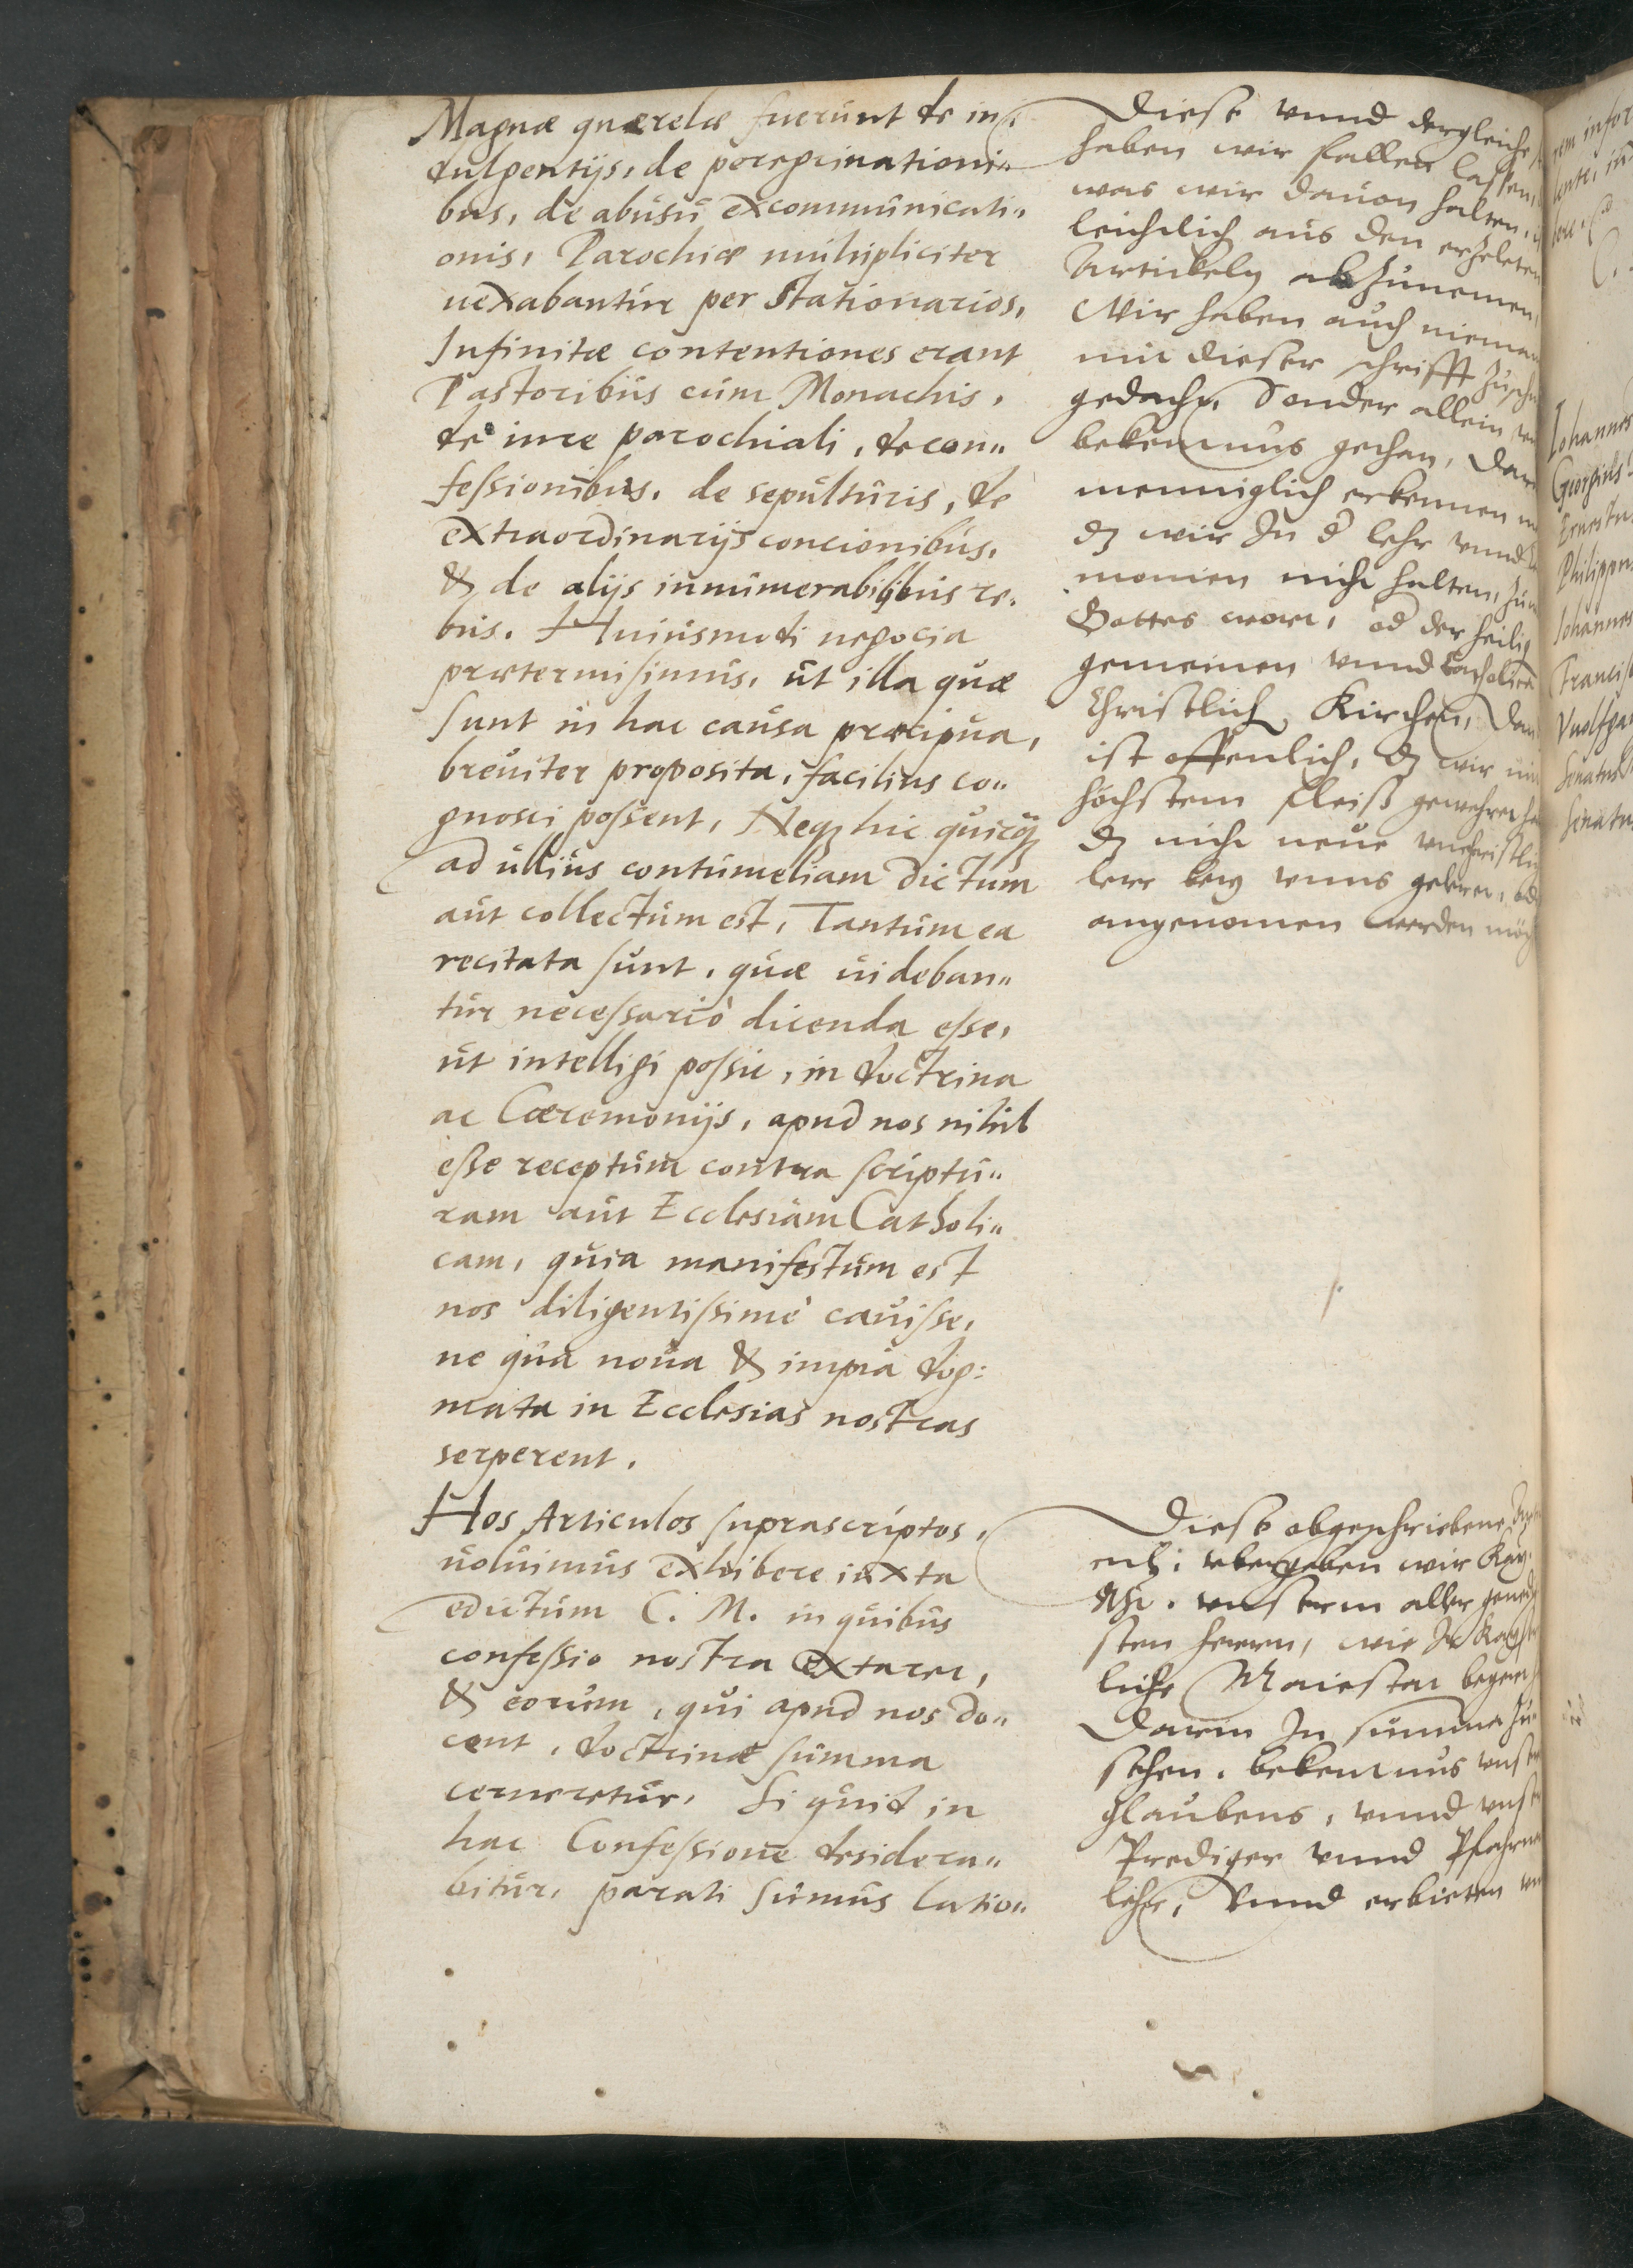 Magnæ quærelæ fuerunt de in:
dulgentijs, de peregrinationi„
bus, de abusu excommunicati„
onis, Parochiæ multipliciter
uexabantur per Stationarios,
Infinitæ contentiones erant
Pastoribus cum Monachis,
de iure parochiali, de con„
fessionibus, de sepulturis, de
extraordinarijs concionibus,
& de alijs innumerabilibus re.
bus. Huiusmodi negocia
prætermisimus, ut illa quæ
sunt in hac causa præcipua,
breuiter proposita, facilius co„
gnosci possent, Neqz hic quicqz
ad ullius contumeliam dictum
aut collectum est, Tantum ea
recitata sunt, quæ uideban„
tur necessariò dicenda esse,
ut intelligi possit, in doctrina
ac Cæremonijs, apud nos nihil
esse receptum contra scriptu„
ram aut Ecclesiam Catholi„
cam, quia manifestum est
nos diligentissimè cauisse,
ne qua noua & impia dog:
mata in Ecclesias nostras
serperent.
Hos Articulos suprascriptos,
uoluimus exhibere iuxta
edictum C. M. in quibus
confessio nostra extaret,
& eorum, qui apud nos do„
cent, doctrinæ summa
cerneretur, Si quid in
hac Confessione desidera„
bitur, parati sumus latio„
Diese vnnd dergleiche
haben wir fallen lassen,
was wir dauon halten,
leichtlich aus den erzeleten
Artickeln abzunemen,
Wir haben auch nieman
mit dieser schrifft
gedacht, Sonder allein
bekentnus gethan,
menniglich erkennen
dz wir In d lehr vnnd
monien nicht halten,
Gottes wort, od der heilig
gemeinen vnnd
Christlich Kirchen,
ist offenlich, dz wir
höchstem fleiß geweheret
dz nicht neue vnchristli
lerr bey vnns geleret,
angenomen werden mög
Diese obgeschriebene
vbergeben wir Kay.
Mt. vnserm aller
sten herren, wie Ir Kays
liche Maiestat begeret
Darin In summa zu„
sehen, bekentnus vnser
glaubens, vnnd vnser
Prediger vnnd Pfahrn
lehr, Vnnd erbieten
Johannes
Georgius
Ernestu
Philippu
Johannes
Francis
Vuolfga
Senatus
Senatu